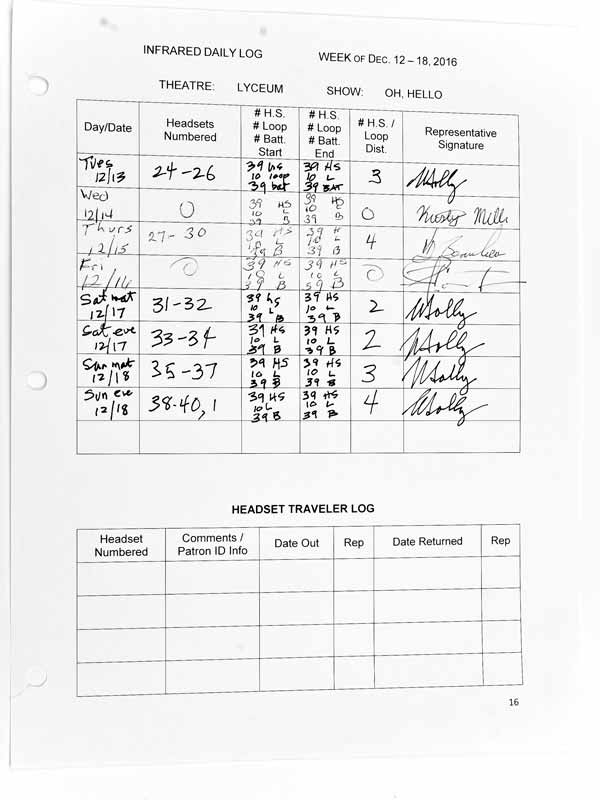 INFRARED DAILY LOG WEEK OF DEC. 12 – 18, 2016
THEATRE: LYCEUM SHOW: OH, HELLO
Day/Date
Headsets
Numbered
# H.S.
# Loop
# Batt.
Start
# H.S.
# Loop
# Batt.
End
# H.S. /
Loop
Dist.
Representative
Signature
Tues
12/13
24-26
39 hs
10 loop
39 bat
39 HS
10 L
39 BAT
3
Wed
12/14
0
39 HS
10 L
39 B
39 HS
10 L
39 B
0
Mills
Thurs
12/15
27-30
39 HS
10 L
39 B
39 H
10 L
39 B
4
Fri
12/16
0
39 HS
10 L
39 B
39 HS
10 L
39 B
0
Sat mat
12/17
31-32
39 hs
10 L
39 B
39 HS
10 L
39 B
2
Sat eve
12/17
33-34
39 HS
10 L
39 B
39 HS
10 L
39 B
2
Sun mat
12/18
35-37
39 HS
10 L
39 B
39 HS
10 L
39 B
3
Sun eve
12/18
38-40, 1
39 HS
10 L
39 B
39 HS
10 L
39 B
4
HEADSET TRAVELER LOG
Headset
Numbered
Comments /
Patron ID Info
Date Out
Rep
Date Returned
Rep
16